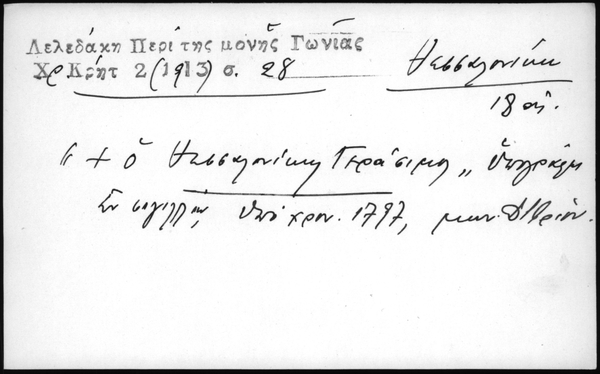 Λελεδάκη Περί της μονῆς Γωνίᾶς
Χρ Κρήτ 2 (1913) σ. 28
Θεσσαλονίκη
18 αἰ.
"+ ὁ Θεσσαλονίκης Γεράσιμος" ὑπογράφει
ἐν σιγιλλίῳ, ὑπό χρον. 1797, μην. Ἀπριλ.